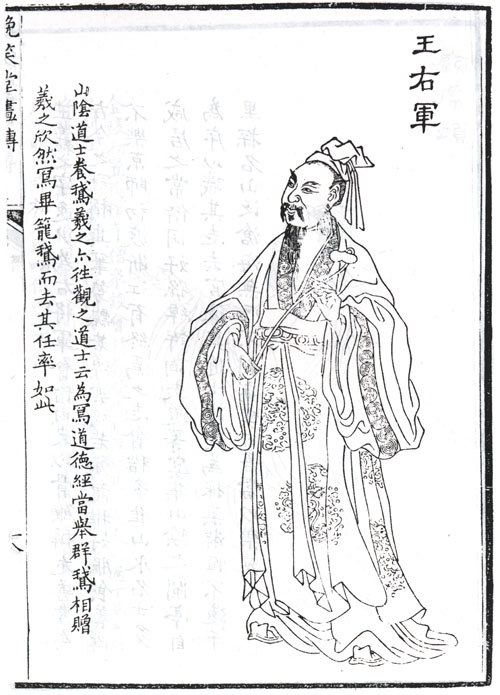 王右軍
山陰道士養鵝羲之亦徃觀之道士云為冩道德經當舉群鵝相贈
羲之欣然冩畢籠鵝而去其任率如此
晚笑堂畫傳
八